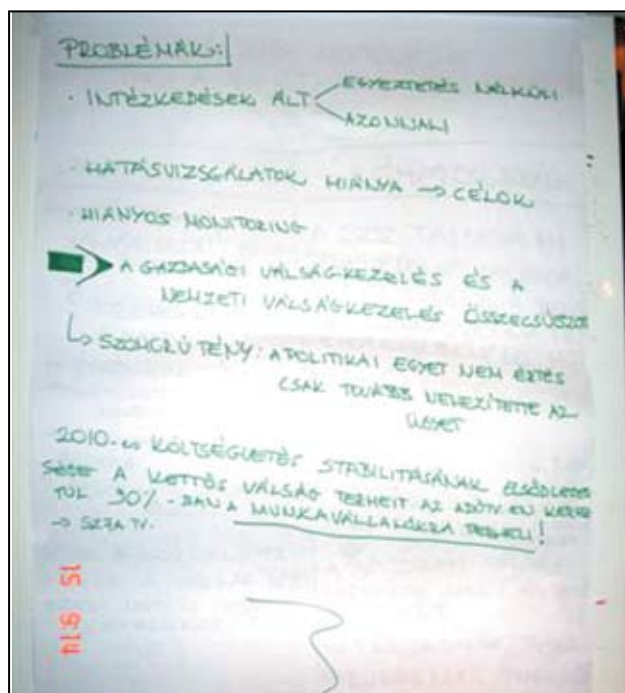 PROBLÉMÁK:
· INTÉZKEDÉSEK ÁLT
EGYEZTETÉS NÉLKÜLI
AZONNALI
· HATÁSVIZSGÁLATOK HIÁNYA → CÉLOK
· HIÁNYOS MONITORING
A GAZDASÁGI VÁLSÁGKEZELÉS ÉS A
NEMZETI VÁLSÁGKEZELÉS ÖSSZECSÚSZOTT
↳ SZOMORÚ TÉNY: A POLITIKAI EGYET NEM ÉRTÉS
CSAK TOVÁBB NEHEZÍTETTE AZ
ÜGYET
2010-es KÖLTSÉGVETÉS STABILITÁSÁNAK ELSŐDLEGES
SÉGE A KETTŐS VÁLSÁG TERHEIT AZ ADÓTV-EN KERESZ
TÜL 90%-BAN A MUNKAVÁLLALÓKRA TERHELI!
→ SZJA TV.
15 9:14